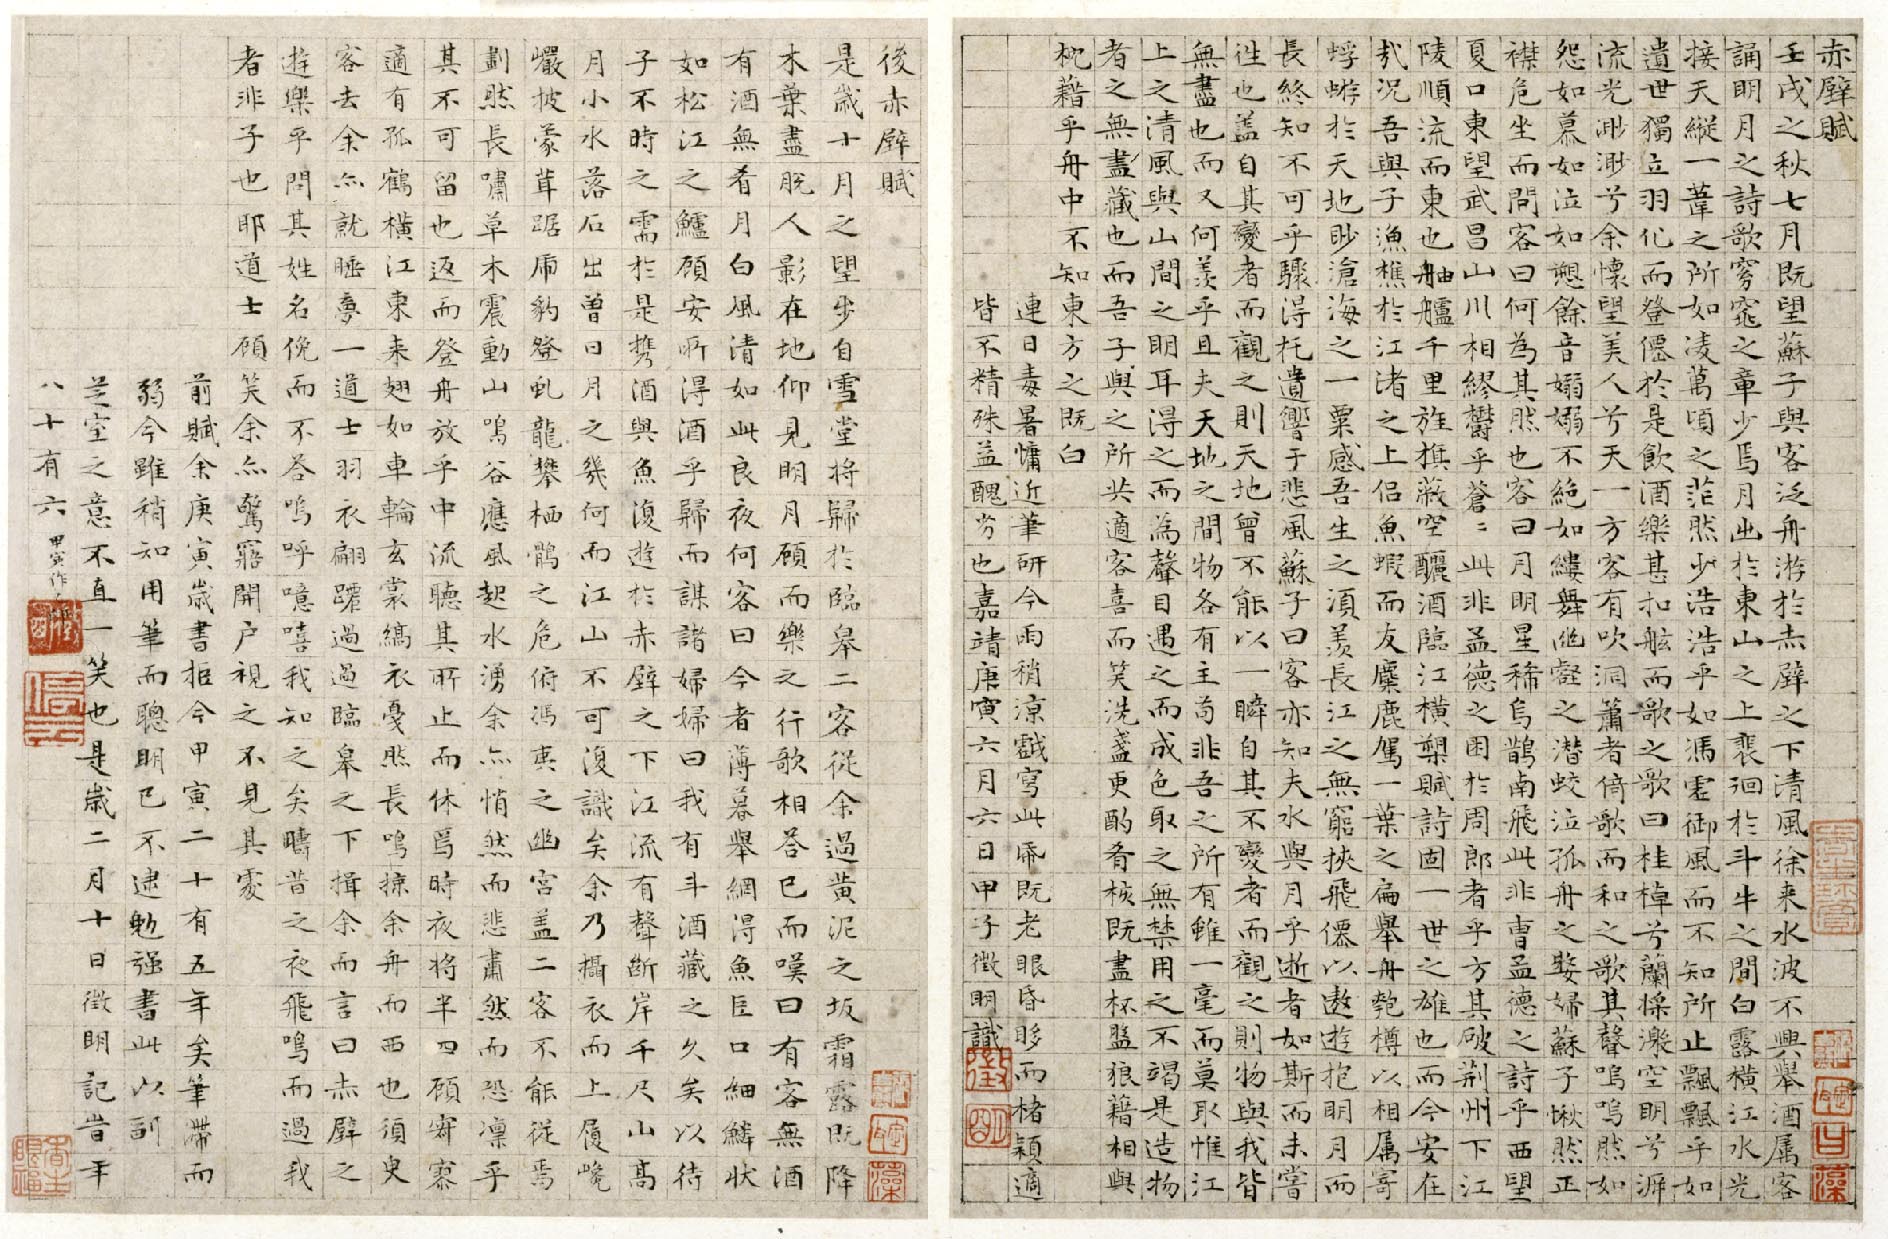 赤壁賦
壬戌之秋七月既望蘇子與客泛舟游於赤壁之下清風徐来水波不興舉酒属客
誦明月之詩歌窈窕之章少焉月出於東山之上裴徊於斗牛之間白露横江水光
接天縱一葦之所如凌萬頃之茫然少浩浩乎如馮虚御風而不知所止飄飄乎如
遺世獨立羽化而登僊於是飲酒樂甚扣舷而歌之歌曰桂棹兮蘭槳擊空明兮泝
流光渺渺兮余懷望美人兮天一方客有吹洞簫者倚歌而和之歌其聲嗚嗚然如
怨如慕如泣如愬餘音嫋嫋不絶如縷舞幽壑之潜蛟泣孤舟之嫠婦蘇子愀然正
襟危坐而問客曰何為其然也客曰月明星稀烏鵲南飛此非曹孟德之詩乎西望
夏口東望武昌山川相繆欝乎蒼〻此非孟德之困於周郎者乎方其破荆州下江
陵順流而東也舳艫千里旌旗蔽空釃酒臨江横槊賦詩固一世之雄也而今安在
哉况吾與子漁樵於江渚之上侣魚蝦而友麋鹿駕一葉之扁舉舟匏樽以相属寄
蜉蝣於天地眇滄海之一粟感吾生之湏羨長江之無窮挟飛僊以遨遊抱明月而
長終知不可乎驟得托遺響于悲風蘇子曰客亦知夫水與月乎逝者如斯而未嘗
往也盖自其變者而觀之則天地曾不能以一瞬自其不變者而觀之則物與我皆
無盡也而又何羨乎且夫天地之間物各有主苟非吾之所有雖一毫而莫取惟江
上之清風與山間之明耳得之而為聲目遇之而成色取之無禁用之不竭是造物
者之無盡藏也而吾子與之所共適客喜而笑洗盞更酌肴核既盡杯盤狼藉相與
枕藉乎舟中不知東方之既白
連日毒暑慵近筆研今雨稍涼戲寫此帋既老眼昏眵而楮穎適
皆不精殊益醜劣也嘉靖庚寅六月六日甲子徵明識
徵明
後赤壁賦
是歲十月之望步自雪堂将歸於臨皋二客從余過黄泥之坂霜露既降
木葉盡脱人影在地仰見明月顧而樂之行歌相荅已而嘆曰有客無酒
有酒無肴月白風清如此良夜何客曰今者薄暮舉網得魚巨口細鱗状
如松江之鱸顧安所得酒乎歸而謀諸婦婦曰我有斗酒藏之久矣以待
子不時之需於是携酒與魚復遊於赤壁之下江流有聲断岸千尺山高
月小水落石出曾日月之幾何而江山不可復識矣余乃攝衣而上履巉
巖披蒙茸踞虎豹登虬龍攀栖鶻之危俯馮夷之幽宫盖二客不能從焉
劃然長嘯草木震動山鳴谷應風起水湧余亦悄然而悲肅然而恐凛乎
其不可留也返而登舟放乎中流聽其所止而休焉時夜将半四顧寂寥
適有孤鶴横江東来翅如車輪玄裳縞衣戛然長鳴掠余舟而西也須臾
客去余亦就睡夢一道士羽衣翩躚過過臨皋之下揖余而言曰赤壁之
遊樂乎問其姓名俛而不荅嗚呼噫嘻我知之矣疇昔之夜飛鳴而過我
者非子也耶道士顧笑余亦驚寤開户視之不見其處
前賦余庚寅歲書柜今甲寅二十有五年矣筆滯而
弱今雖稍知用筆而聰明已不逮勉强書此以副
芝室之意不直一笑也是歲二月十日徵明記昔年
八十有六